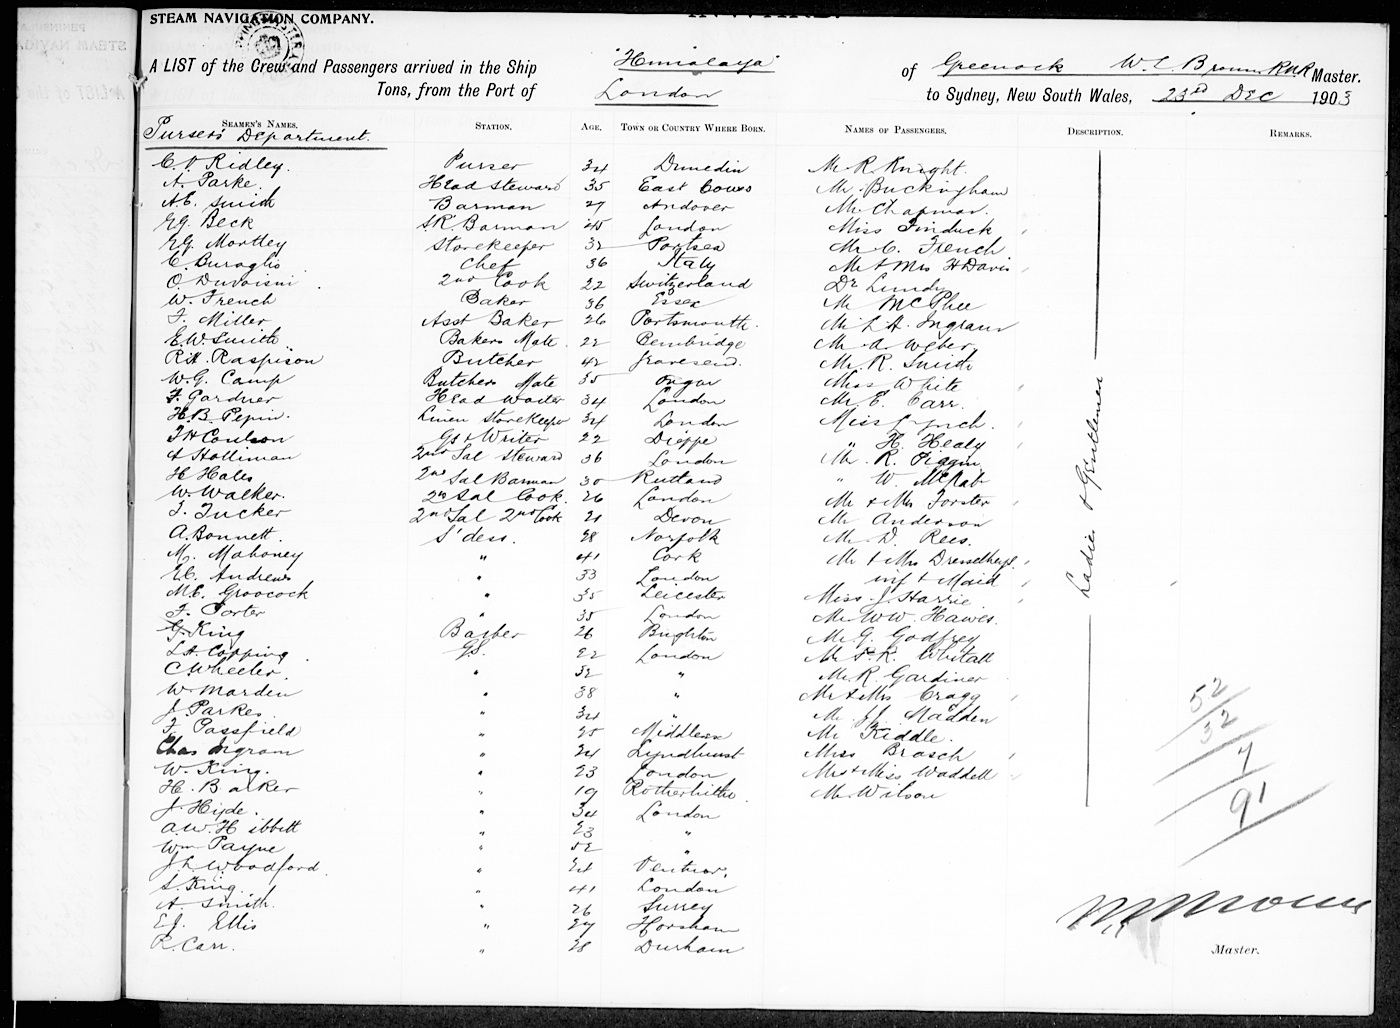 STEAM NAVIGATION COMPANY.
INWARD.
A LIST of the Crew and Passengers arrived in the Ship "Himalaya" of Greenock W. L. Broun RNR Master.
Tons, from the Port of London to Sydney, New South Wales, 23rd DEC 1903
SEAMEN'S NAMES. STATION. AGE. TOWN OR COUNTRY WHERE BORN. NAMES OF PASSENGERS. DESCRIPTION. REMARKS.
Purser's Department.
C. V. Ridley. Purser 34 Dunedin Mr R. Knight.
A. Parke. Head Steward 35 East Cowes Mr. Buckingham
A.E. Smith Barman 27 Andover Mr Chapman.
E.G. Beck S.R. Barman 45 London Miss Finduck
E.G. Mortley Storekeeper 32 Portsea Mr C. French
C. Buroglio Chef 36 Italy Mr & Mrs H Davis
O. Duvoisin 2nd Cook 22 Switzerland Dr Lundy
W. French Baker 36 Essex Mr McPhee
F. Miller Asst Baker 26 Portsmouth. Mr L A. Ingram
E.W. Smith Bakers Mate 22 Bembridge Mr A. Weber
R.H. Raspison Butcher 42 Gravesend. Mr. R. Smith
W.G. Camp Butchers Mate 35 Ongar Miss White
F. Gardner Head Waiter 34 London Mr E. Carr.
H.B. Pepin. Linen Storekeeper 34 London Miss Lynch.
F H Coulson GS & Writer 22 Dieppe " H. Healy
A Holliman 2nd Sal Steward 36 London Mr. R. Piggin
H Hales 2nd Sal Barman 30 Rutland " W. McNab
W. Walker. 2nd Sal Cook. 26 London Mr & Mrs Forster
F. Tucker 2nd Sal 2nd Cook 21 Devon Mr Anderson
A. Bonnett. S'dess. 28 Norfolk Mr D. Rees.
M. Mahoney " 41 Cork Mr & Mrs
E.C. Andrews " 33 London inf & Maid
M.E. Groocock " 35 Leicester Miss J. Harrie
F. Porter " 35 London Mr W.W. Hawes.
G. King Barber 26 Brighton Mr G. Godfrey
L.A. Copping. G.S. 22 London Mr F. R. Whitall
C. Wheeler. " 32 " Mr R. Gardiner
W. Marden " 38 " Mr & Mrs Cragg
J. Parkes " 34 " Mr. J.J. Madden
F. Passfield " 25 Middlesex Mr Kiddle.
Chas Ingram " 24 Lyndhurst Miss Brasch
W. King. " 23 London Mrs & Miss Waddell
H. Barker " 19 Rotherhithe. Mr Wilson
J. Hyde. " 34 London
A.W. Hibbett " 23 "
Wm Payne " 52 "
J.L. Woodford. " 24 Ventnor.
S. King. " 41 London
A. Smith. " 26 Surrey
E.J. Ellis " 27 Horsham
R. Carr. " 28 Durham
Ladies & Gentlemen
52
32
7
91
Master.